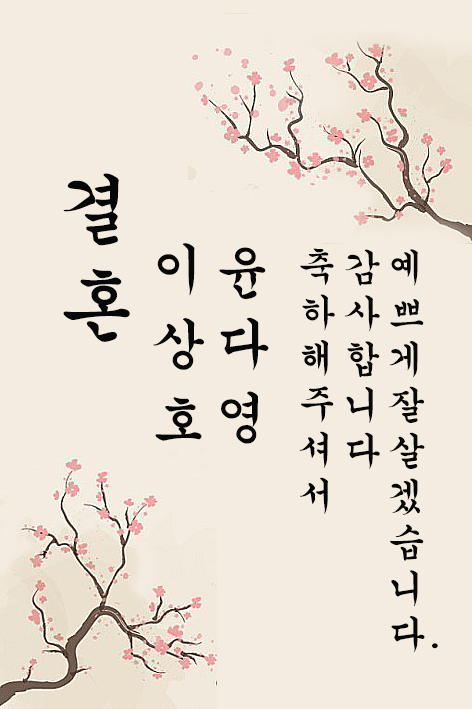 결혼
이상호
윤다영
축하해주셔서
감사합니다
예쁘게잘살겠습니다.